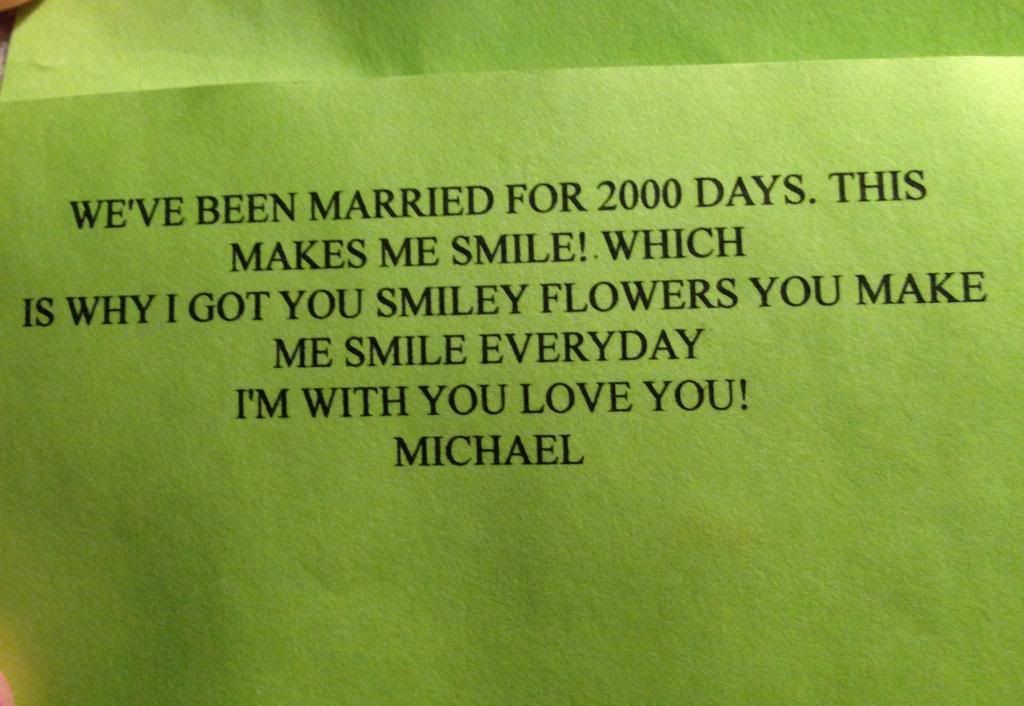 WE'VE BEEN MARRIED FOR 2000 DAYS. THIS
MAKES ME SMILE! WHICH
IS WHY I GOT YOU SMILEY FLOWERS YOU MAKE
ME SMILE EVERYDAY
I'M WITH YOU LOVE YOU!
MICHAEL